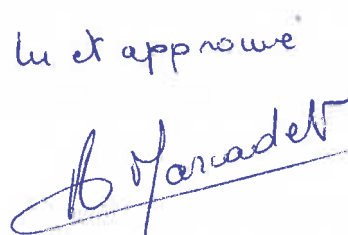 lu et approuvé
A Marcadet